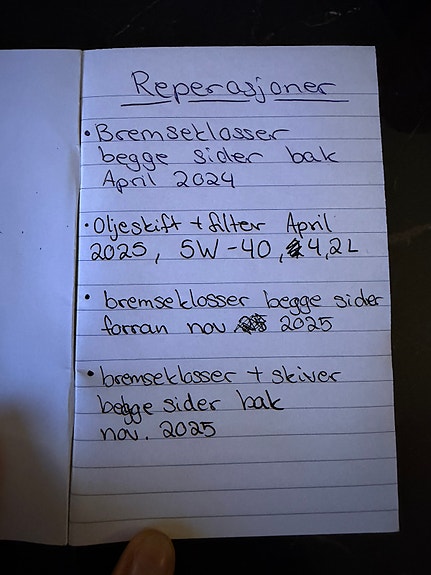 Reperasjoner
• Bremseklosser
begge sider bak
April 2024
• Oljeskift + filter April
2025, 5W-40, 4,2L
• bremseklosser begge sider
forran nov 2025
• bremseklosser + skiver
begge sider bak
nov. 2025